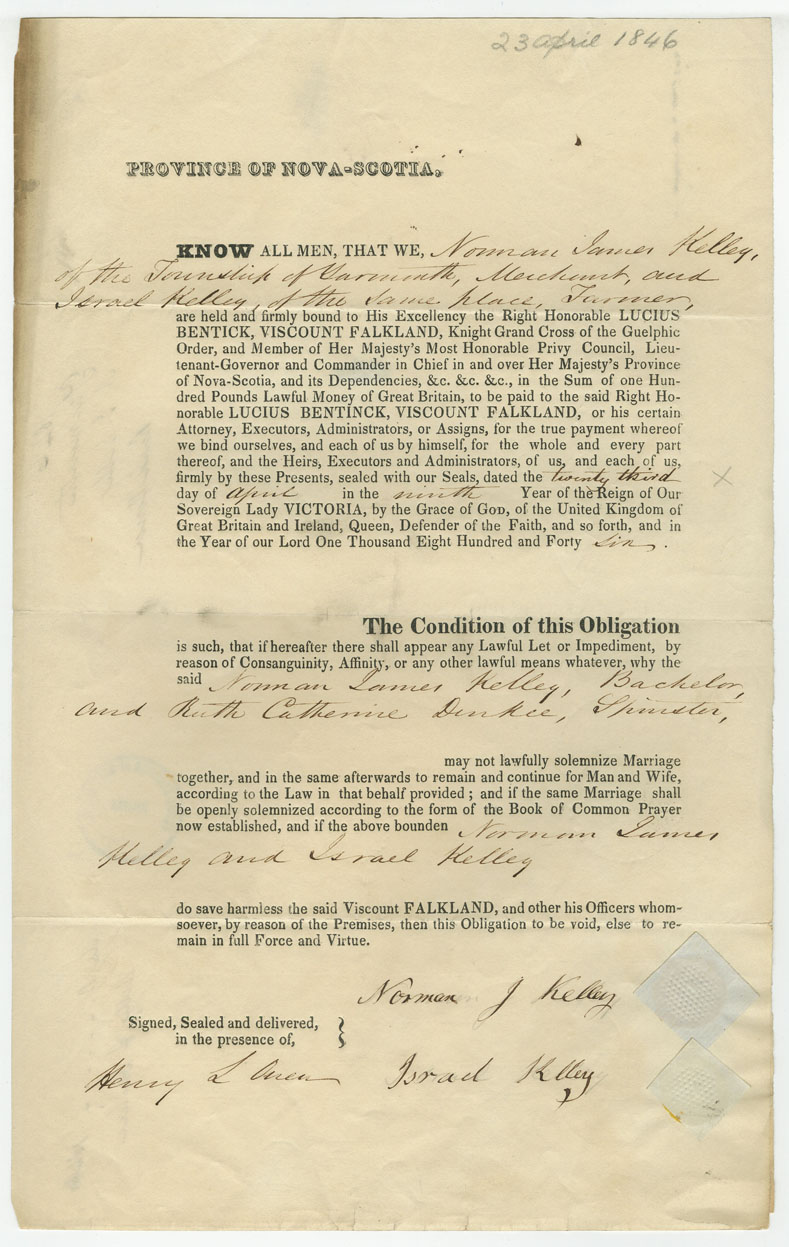 23 april 1846
PROVINCE OF NOVA-SCOTIA.
KNOW ALL MEN, THAT WE, Norman James Kelley,
of the Township of Yarmouth, Merchant, and
Israel Kelley, of the same place, Farmer,
are held and firmly bound to His Excellency the Right Honorable LUCIUS
BENTICK, VISCOUNT FALKLAND, Knight Grand Cross of the Guelphic
Order, and Member of Her Majesty's Most Honorable Privy Council, Lieu-
tenant-Governor and Commander in Chief in and over Her Majesty's Province
of Nova-Scotia, and its Dependencies, &c. &c. &c., in the Sum of one Hun-
dred Pounds Lawful Money of Great Britain, to be paid to the said Right Ho-
norable LUCIUS BENTINCK, VISCOUNT FALKLAND, or his certain
Attorney, Executors, Administrators, or Assigns, for the true payment whereof
we bind ourselves, and each of us by himself, for the whole and every part
thereof, and the Heirs, Executors and Administrators, of us, and each of us,
firmly by these Presents, sealed with our Seals, dated the twenty third
day of April in the ninth Year of the Reign of Our
Sovereign Lady VICTORIA, by the Grace of GOD, of the United Kingdom of
Great Britain and Ireland, Queen, Defender of the Faith, and so forth, and in
the Year of our Lord One Thousand Eight Hundred and Forty six.
The Condition of this Obligation
is such, that if hereafter there shall appear any Lawful Let or Impediment, by
reason of Consanguinity, Affinity, or any other lawful means whatever, why the
said Norman James Kelley, Bachelor,
and Ruth Catherine Dinkee, Spinster,
may not lawfully solemnize Marriage
together, and in the same afterwards to remain and continue for Man and Wife,
according to the Law in that behalf provided; and if the same Marriage shall
be openly solemnized according to the form of the Book of Common Prayer
now established, and if the above bounden Norman James
Kelley and Israel Kelley
do save harmless the said Viscount FALKLAND, and other his Officers whom-
soever, by reason of the Premises, then this Obligation to be void, else to re-
main in full Force and Virtue.
Norman J Kelley
Signed, Sealed and delivered,
in the presence of,
Henry L Israel Kelley